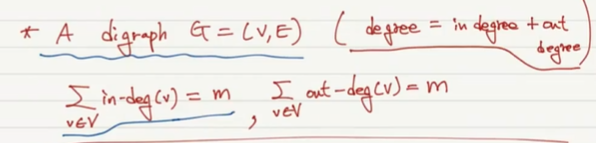 * A digraph G = (V, E) ( degree = in degree + out degree )
∑ in-deg(v) = m , ∑ out-deg(v) = m
v∈V v∈V